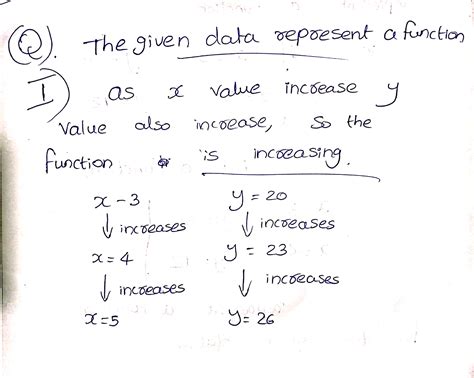 Q. The given data represent a function
I) as x value increase y
value also increase, So the
function is increasing.
x - 3 y = 20
↓ increases ↓ increases
x = 4 y = 23
↓ increases ↓ increases
x = 5 y = 26